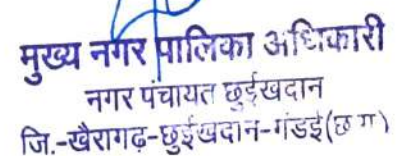 मुख्य नगर पालिका अधिकारी
नगर पंचायत छुईखदान
जि.-खैरागढ़-छुईखदान-गंडई(छ ग)